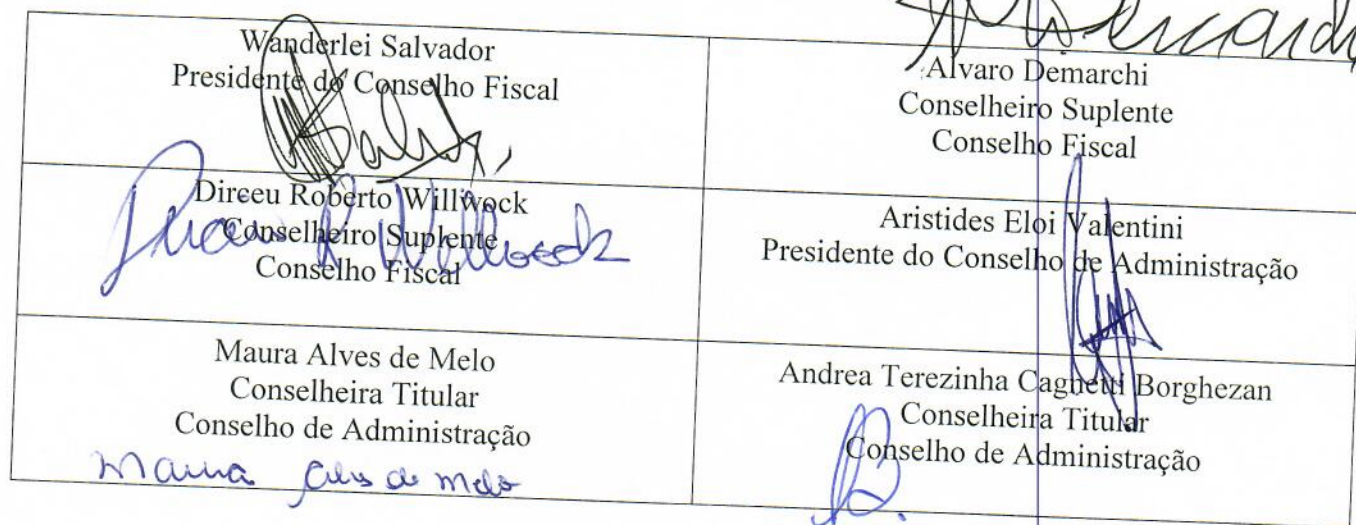 Wanderlei Salvador
Presidente do Conselho Fiscal
Alvaro Demarchi
Conselheiro Suplente
Conselho Fiscal
Dirceu Roberto Willwock
Conselheiro Suplente
Conselho Fiscal
Aristides Eloi Valentini
Presidente do Conselho de Administração
Maura Alves de Melo
Conselheira Titular
Conselho de Administração
Maura Alves de Melo
Andrea Terezinha Cagnetti Borghezan
Conselheira Titular
Conselho de Administração